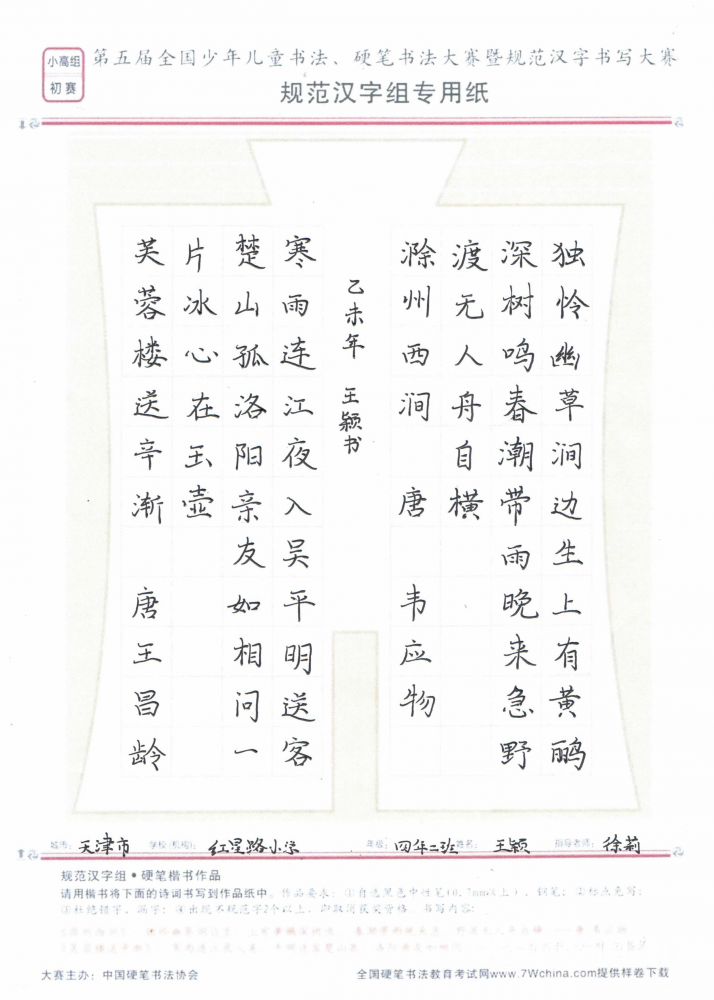 小高组
初赛
第五届全国少年儿童书法、硬笔书法大赛暨规范汉字书写大赛
规范汉字组专用纸
独怜幽草涧边生上有黄鹂
深树鸣春潮带雨晚来急野
渡无人舟自横
滁州西涧 唐 韦应物
乙未年 王颖书
寒雨连江夜入吴平明送客
楚山孤洛阳亲友如相问一
片冰心在玉壶
芙蓉楼送辛渐 唐 王昌龄
城市: 天津市 学校(机构): 红星路小学 年级: 四年二班 姓名: 王颖 指导老师: 徐莉
规范汉字组•硬笔楷书作品
请用楷书将下面的诗词书写到作品纸中。作品要求:①自选黑色中性笔(0.7mm以上)、钢笔;②标点免写;
③杜绝错字、漏字;④出现不规范字2个以上,即取消获奖资格。书写内容:
大赛主办:中国硬笔书法协会
全国硬笔书法教育考试网www.7Wchina.com提供样卷下载